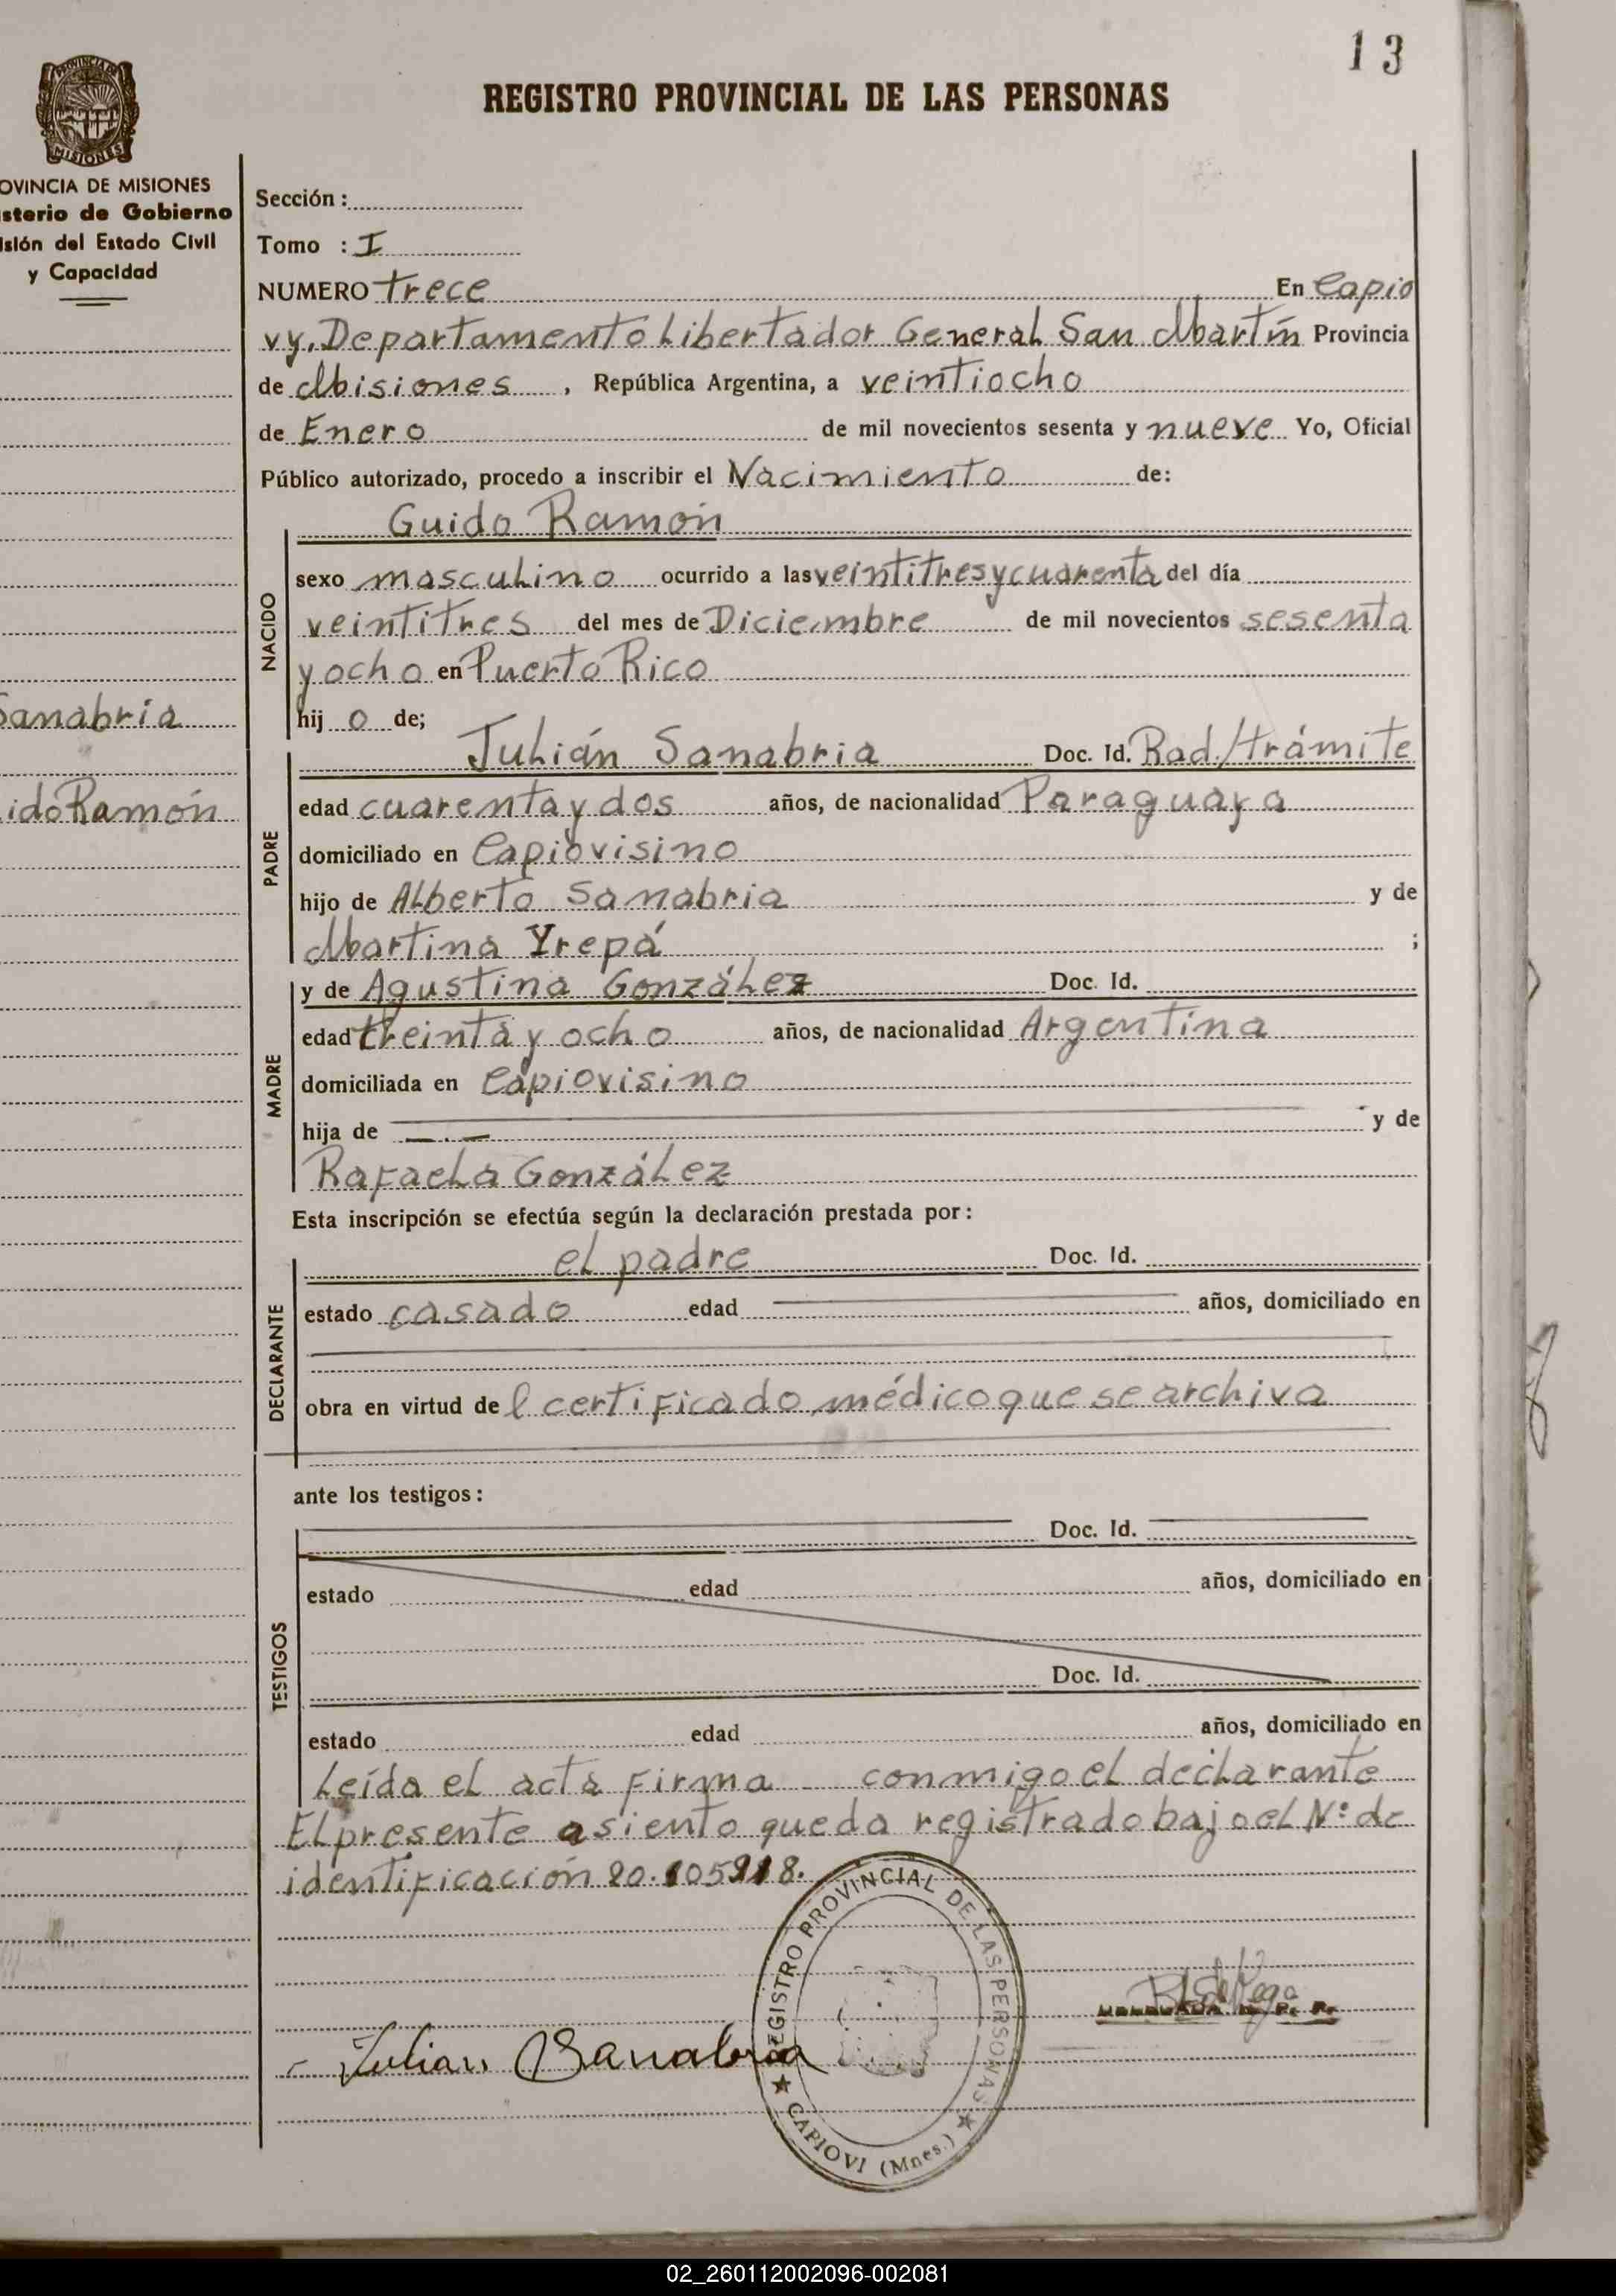 13
REGISTRO PROVINCIAL DE LAS PERSONAS
PROVINCIA DE
MISIONES
OVINCIA DE MISIONES
sterio de Gobierno
isión del Estado Civil
y Capacidad
Sanabria
idoRamón
Sección:
Tomo : I
NUMERO trece En Capio
vy, Departamento Libertador General San Martín Provincia
de Misiones, República Argentina, a veintiocho
de Enero de mil novecientos sesenta y nueve Yo, Oficial
Público autorizado, procedo a inscribir el Nacimiento de:
Guido Ramón
NACIDO
sexo masculino ocurrido a las veintitres y cuarenta del día
veintitres del mes de Diciembre de mil novecientos sesenta
y ocho en Puerto Rico
hij o de;
PADRE
Julián Sanabria Doc. Id. Rad./trámite
edad cuarenta y dos años, de nacionalidad Paraguaya
domiciliado en Capiovisino
hijo de Alberto Sanabria y de
Martina Yrepá ;
MADRE
y de Agustina González Doc. Id.
edad treinta y ocho años, de nacionalidad Argentina
domiciliada en Capiovisino
hija de — . — y de
Rafaela González
Esta inscripción se efectúa según la declaración prestada por:
DECLARANTE
el padre Doc. Id.
estado casado edad años, domiciliado en
obra en virtud de l certificado médico que se archiva
ante los testigos:
TESTIGOS
Doc. Id.
estado edad años, domiciliado en
Doc. Id.
estado edad años, domiciliado en
Leída el acta firma conmigo el declarante
El presente asiento queda registrado bajo el Nº de
identificación 20.105.918.
REGISTRO PROVINCIAL DE LAS PERSONAS
★ CAPIOVI (Mnes.) ★
Julian Sanabria
02_260112002096-002081